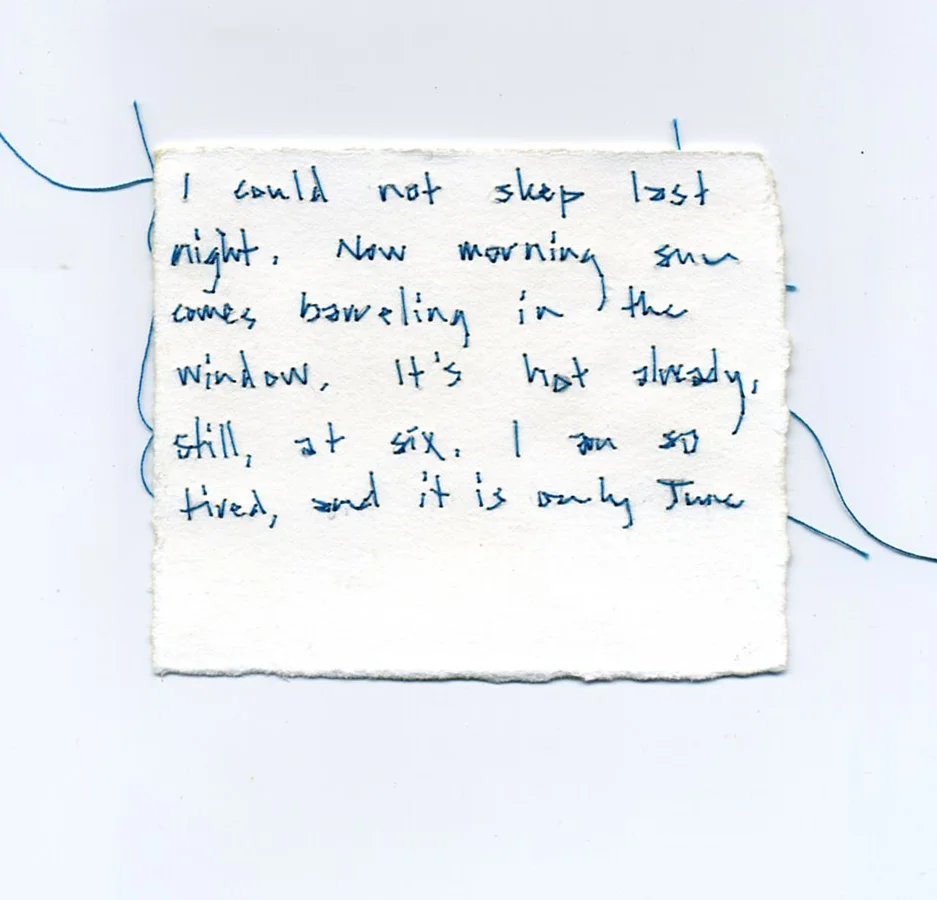 I could not sleep last
night. Now morning sun
comes barreling in the
window. It's hot already,
still, at six. I am so
tired, and it is only June